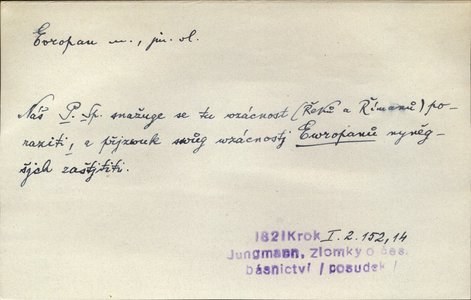 Evropan m., jm. vl.
Náš P. Sp. snažuge se tu vzácnost (Řeků a Římanů) po-
raziti, a přjzwuk swůg vzácnostj Ewropanů nyněg-
šjch zaštjtiti.
1821 Krok I. 2. 152, 14
Jungmann, Zlomky o čes.
básnictví / posudek /